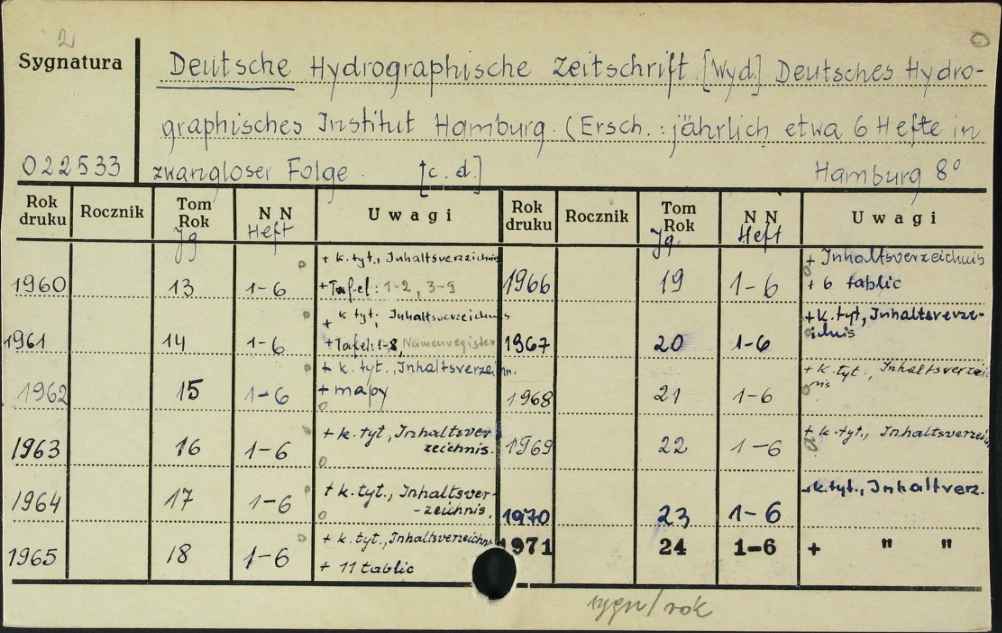 2
Sygnatura
Deutsche Hydrographische Zeitschrift [Wyd.] Deutsches Hydro-
graphisches Institut Hamburg. (Ersch.: jährlich etwa 6 Hefte in
022533 zwangloser Folge. [c. d.] Hamburg 8°
Rok druku Rocznik Tom Rok Jg N N Heft Uwagi Rok druku Rocznik Tom Rok Jg. N N Heft Uwagi
1960 13 1-6 + k. tyt., Inhaltsverzeichnis
+ Tafel: 1-2, 3-9
1961 14 1-6 + k. tyt., Inhaltsverzeichnis
+ Tafel: 1-8, Namenregister
1962 15 1-6 + k. tyt., Inhaltsverzeichn.
+ mapy
1963 16 1-6 + k. tyt., Inhaltsver-
zeichnis.
1964 17 1-6 + k. tyt., Inhaltsver-
-zeichnis.
1965 18 1-6 + k. tyt., Inhaltsverzeichn
+ 11 tablic
1966 19 1-6 + Inhaltsverzeichnis
+ 6 tablic
1967 20 1-6 + k. tyt., Inhaltsverze-
ichnis
1968 21 1-6 + k. tyt., Inhaltsverzeich
nis
1969 22 1-6 + k. tyt., Inhaltsverzeich
1970 23 1-6 + k. tyt., Inhaltverz.
1971 24 1-6 + " "
sygn/rok